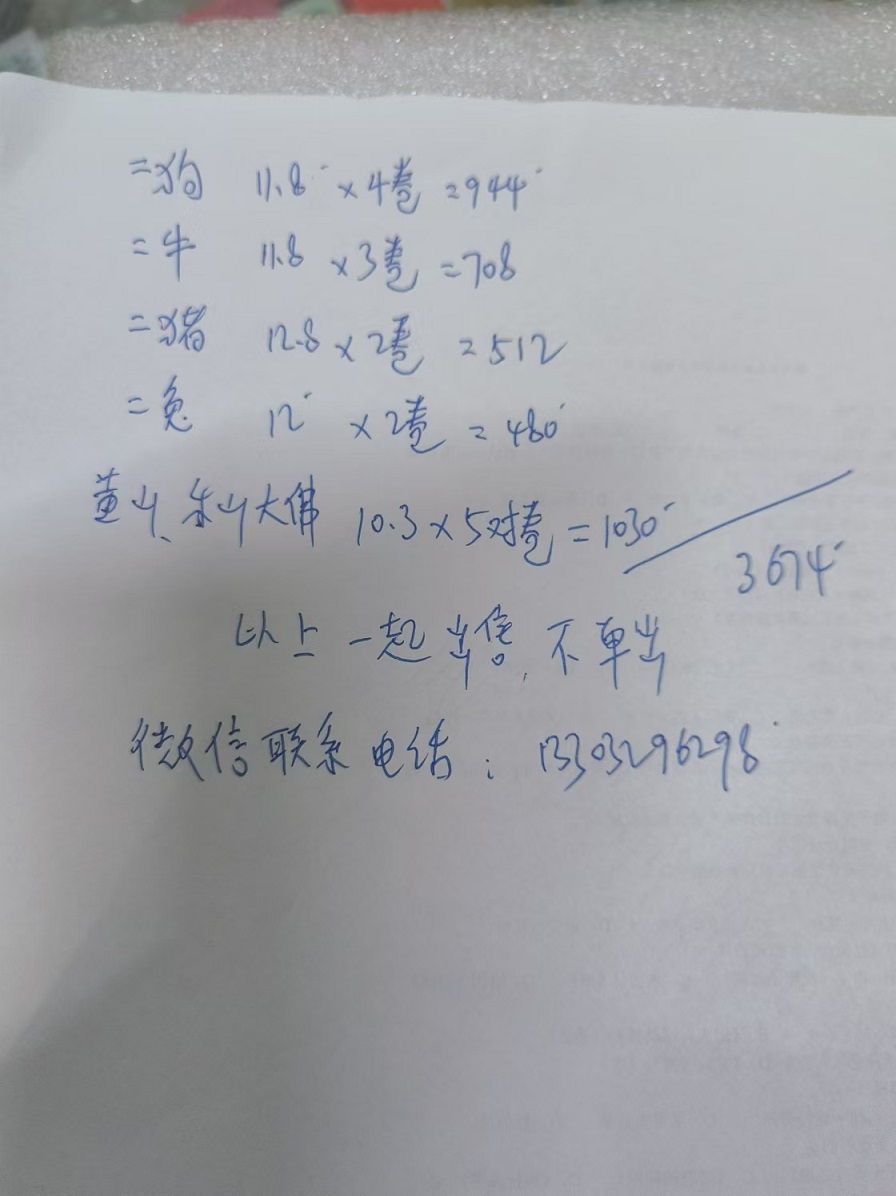 二狗 11.8 ×4卷 =944
二牛 11.8 ×3卷 =708
二猪 12.8 ×2卷 =512
二兔 12 ×2卷 =480
黄山、乐山大佛 10.3×5对卷=1030
3674
以上一起出售,不单出
微信联系电话:13303296298